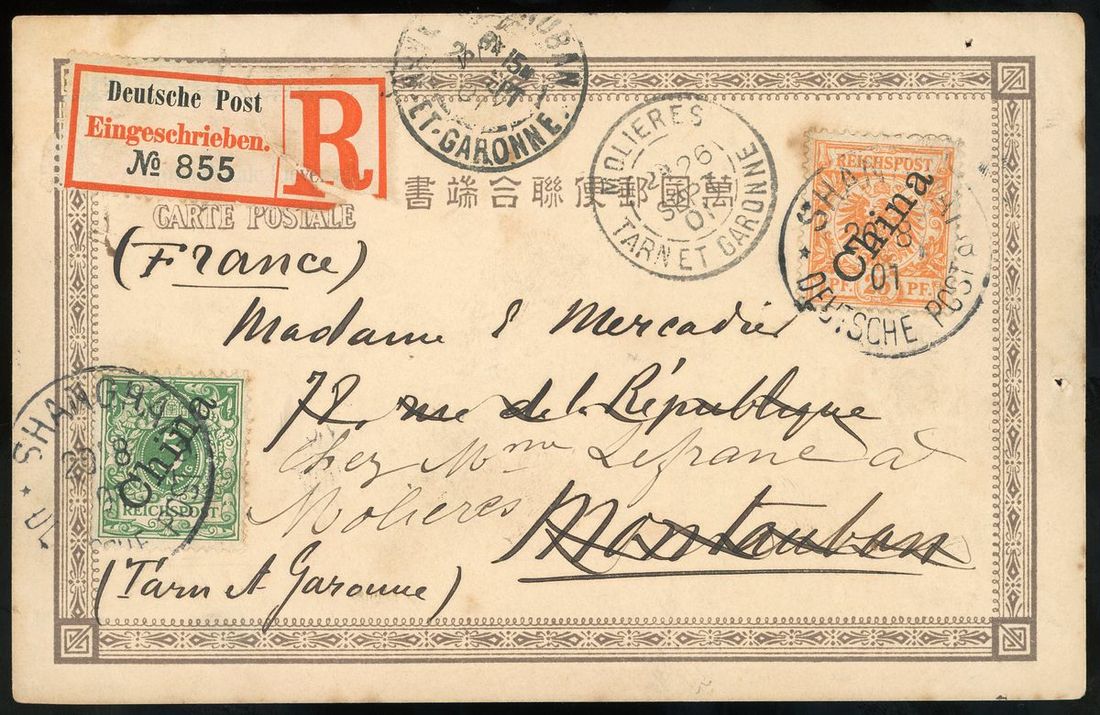 Deutsche Post
Eingeschrieben.
№ 855
R
MONTAUBAN
SEPT
TARN-ET-GARONNE.
MOLIERES
26
SEPT
01
TARN ET GARONNE
書端合聯便郵國萬
CARTE POSTALE
REICHSPOST
China
PF. 25 PF.
SHANGHAI
26 8
01
DEUTSCHE POST
(France)
Madame E Mercadier
72, rue de la République
Chez Mme Lefranc à
Molieres
Montauban
(Tarn et Garonne)
SHANGHAI
8
China
REICHSPOST